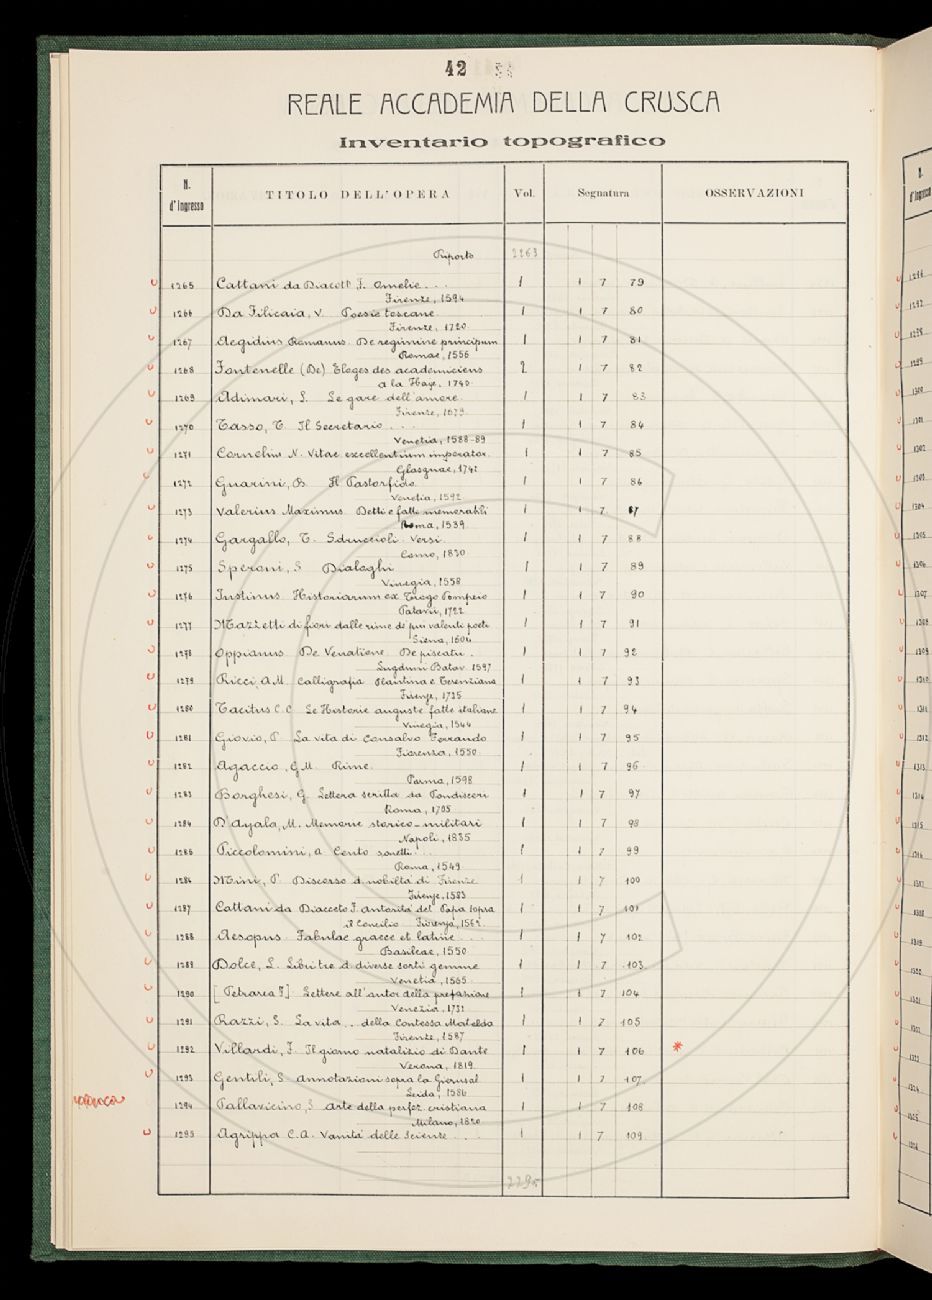 42
REALE ACCADEMIA DELLA CRUSCA
Inventario topografico
N. d'Ingresso TITOLO DELL'OPERA Vol. Segnatura OSSERVAZIONI
Riporto 2263
1265 Cattani da Diacett. F. Omelie . . . 1 1 7 79
Firenze, 1594
1266 Da Filicaia, V. Poesie toscane 1 1 7 80
Firenze, 1720
1267 Aegidius Romanus. De regimine principum 1 1 7 81
Romae, 1556
1268 Fontenelle (De) Eloges des academiciens 2 1 7 82
a la Haye, 1740
1269 Adimari, L. Le gare dell'amore 1 1 7 83
Firenze, 1679
1270 Tasso, T. Il Secretario . . . 1 1 7 84
Venetia, 1588-89
1271 Cornelius N. Vitae excellentium imperator. 1 1 7 85
Glasguae, 1741
1272 Guarini, B. Il Pastorfido 1 1 7 86
Venetia, 1592
1273 Valerius Maximus. Detti e fatti memorabili 1 1 7 87
Roma, 1539
1274 Gargallo, T. Sdruccioli. Versi. 1 1 7 88
Como, 1830
1275 Speroni, S. Dialoghi 1 1 7 89
Vinegia, 1558
1276 Iustinus. Historiarum ex Trogo Pompeio 1 1 7 90
Patavii, 1722
1277 Mazzetti di fiori dalle rime de più valenti poeti 1 1 7 91
Siena, 1604
1278 Oppianus. De Venatione. De piscatu. 1 1 7 92
Lugduni Batav. 1597
1279 Ricci, A.M. Calligrafia Plautina e Terenziana 1 1 7 93
Firenze, 1735
1280 Tacitus C.C. Le Historie auguste fatte italiane 1 1 7 94
Vinegia, 1544
1281 Giovio, P. La vita di Consalvo Ferrando 1 1 7 95
Fiorenza, 1550
1282 Agaccio, G.M. Rime. 1 1 7 96
Parma, 1598
1283 Borghesi, G. Lettera scritta da Pondisceri 1 1 7 97
Roma, 1705
1284 D'Ayala, M. Memorie storico-militari 1 1 7 98
Napoli, 1835
1285 Piccolomini, A. Cento sonetti . . . 1 1 7 99
Roma, 1549
1286 Mini, P. Discorso d. nobiltà di Firenze 1 1 7 100
Firenze, 1593
1287 Cattani da Diacceto F. Autorità del Papa sopra 1 1 7 101
il Concilio Fiorenza, 1562
1288 Aesopus. Fabulae graece et latine . . . 1 1 7 102
Basileae, 1550
1289 Dolce, L. Libri tre d. diverse sorti gemme 1 1 7 103
Venetia, 1565
1290 [Petrarca F.] Lettere all'autor della prefazione 1 1 7 104
Venezia, 1731
1291 Razzi, S. La vita . . della Contessa Matelda 1 1 7 105
Firenze, 1587
1292 Villardi, F. Il giorno natalizio di Dante 1 1 7 106 *
Verona, 1819
1293 Gentili, S. Annotazioni sopra la Gierusal 1 1 7 107
Leida, 1586
1294 Pallavicino, S. Arte della perfez. cristiana 1 1 7 108
Milano, 1820
1295 Agrippa C.A. Vanità delle Scienze . . . 1 1 7 109
2295